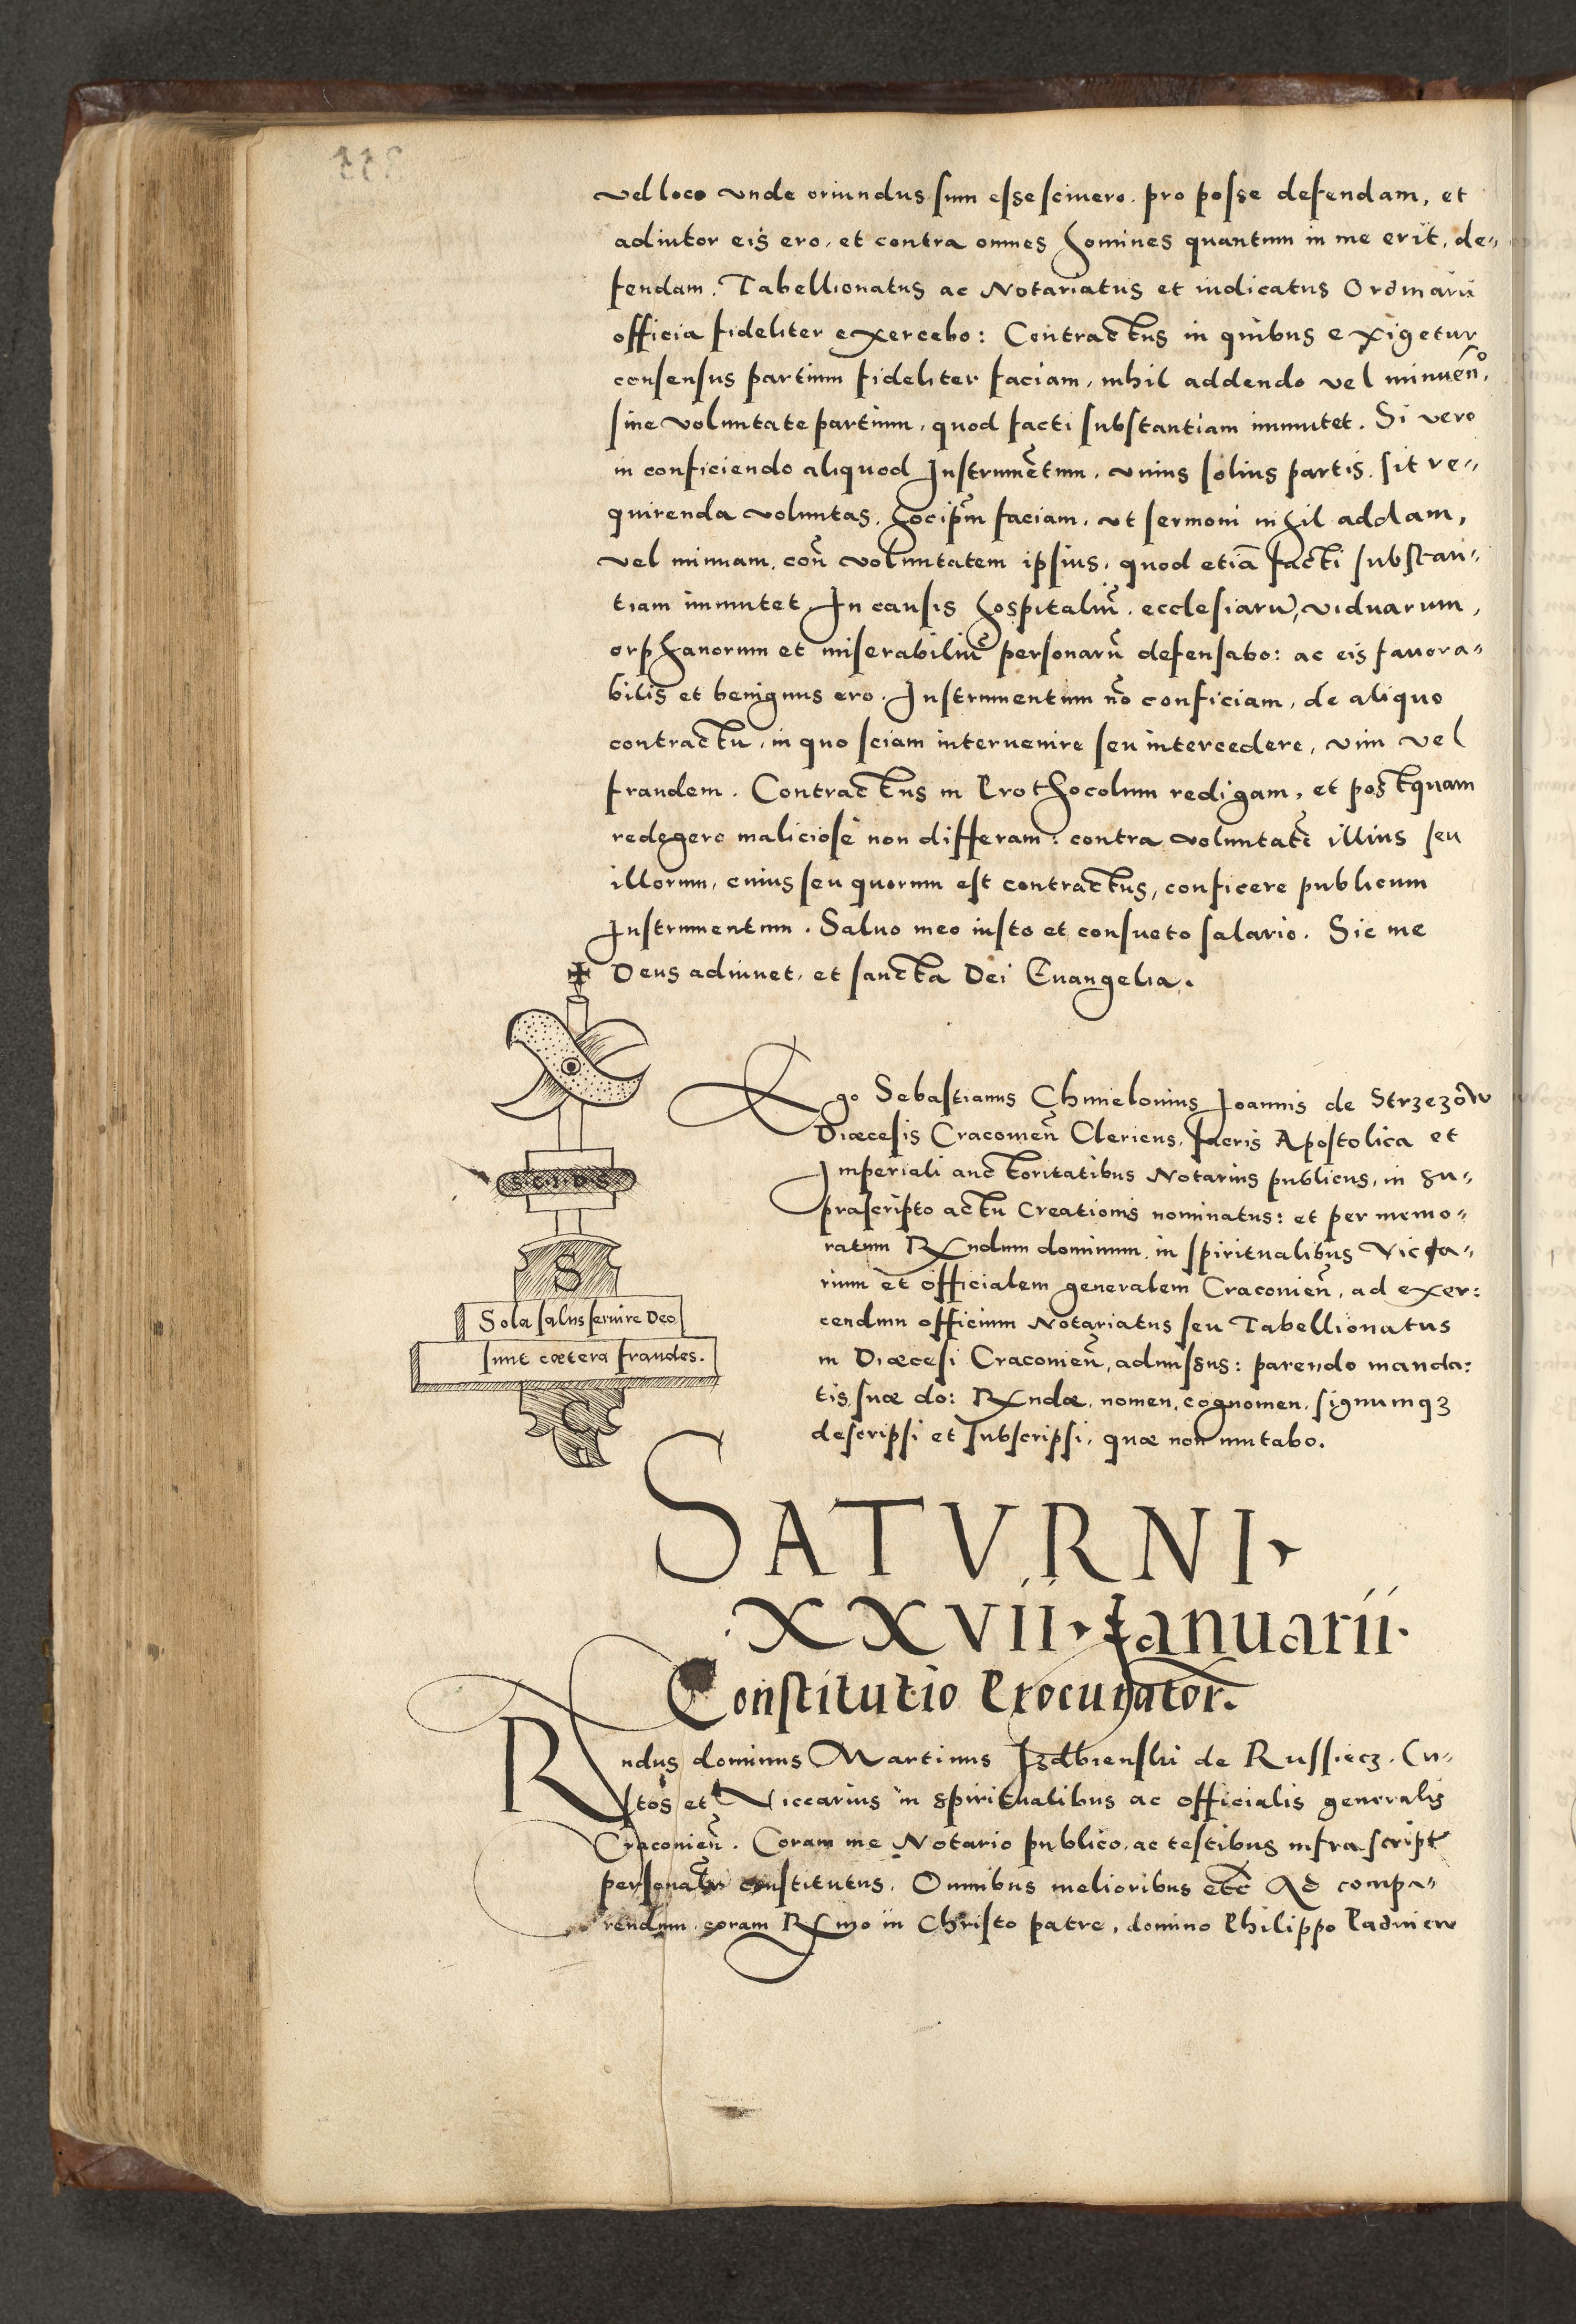 vel loco vnde oriundus sum esse sciuero. pro posse defendam, et
adiutor eis ero, et contra omnes homines quantum in me erit, de„
fendam. Tabellionatus ac Notariatus et iudicatus Ordinarii
officia fideliter exercebo: Contractus in quibus exigetur
consensus partium fideliter faciam, nihil addendo vel minuen̄º,
sine voluntate partium, quod facti substantiam immutet. Si vero
in conficiendo aliquod Instrumētum, vnius solius partis. sit re„
quirenda voluntas, hocip̄m faciam, vt sermoni nihil addam,
vel minuam, con̄ voluntatem ipsius, quod etiā facti substan„
tiam immutet. In causis hospitaliū, ecclesiarū, viduarum,
orphanorum et miserabiliū personarū defensabo: ac eis fauora„
bilis et benignus ero. Instrumentum nō conficiam, de aliquo
contractu, in quo sciam interuenire seu intercedere, vim vel
fraudem. Contractus in Prothocolum redigam, et postquam
redegero maliciose non differam: contra voluntatē illius seu
illorum, cuius seu quorum est contractus, conficere publicum
Instrumentum. Saluo meo iusto et consueto salario. Sic me
Deus adiuuet, et sancta Dei Euangelia.
Ego Sebastianus Chmielouius Joannis de Strzezów
Diæcesis Cracouien̄ Clericus, sacris Apostolica et
Imperiali auctoritatibus Notarius publicus, in su„
prascripto actu Creationis nominatus: et per memo„
ratum Rndum dominum, in spiritualibus Vicca„
rium et officialem generalem Cracouien̄, ad exer:
cendum officium Notariatus seu Tabellionatus
in Diæcesi Cracouien̄, admissus: parendo manda:
tis suæ do: Rndæ, nomen, cognomen, signumqꝫ
descripsi et subscripsi, quæ non mutabo.
S
Sola salus seruire Deo
sunt cætera fraudes.
C
SATVRNI
XXVII Ianuarii.
Constitutio Procurator.
Rndus dominus Martinus Izdbienski de Russiecz. Cu„
stos et Viccarius in spiritualibus ac officialis generalis
Cracouien̄. Coram me Notario publico, ac testibus infrascript
constitutus. Omnibus melioribus etc̄ Ad compa„
rendum coram Rmo in Christo patre, domino Philippo Padniew